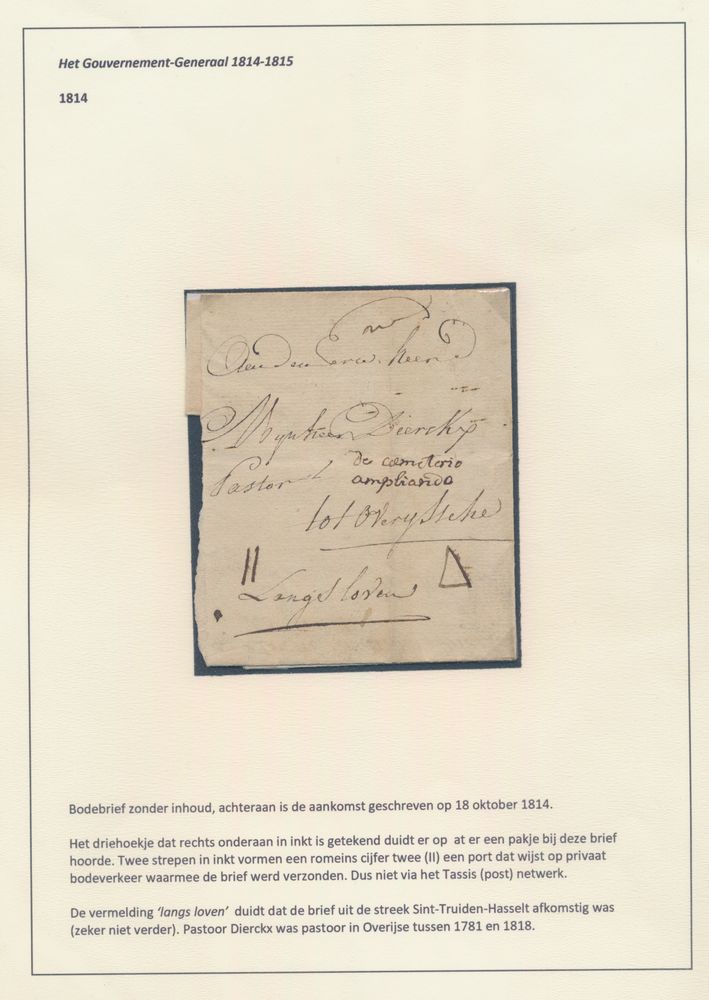 Het Gouvernement-Generaal 1814-1815
1814
Aen den Eerw. heer
Mynheer Dierckx
Pastor
de cæmeterio
ampliando
tot overyssche
II
Langs loven
Bodebrief zonder inhoud, achteraan is de aankomst geschreven op 18 oktober 1814.
Het driehoekje dat rechts onderaan in inkt is getekend duidt er op at er een pakje bij deze brief
hoorde. Twee strepen in inkt vormen een romeins cijfer twee (II) een port dat wijst op privaat
bodeverkeer waarmee de brief werd verzonden. Dus niet via het Tassis (post) netwerk.
De vermelding ‘langs loven’ duidt dat de brief uit de streek Sint-Truiden-Hasselt afkomstig was
(zeker niet verder). Pastoor Dierckx was pastoor in Overijse tussen 1781 en 1818.